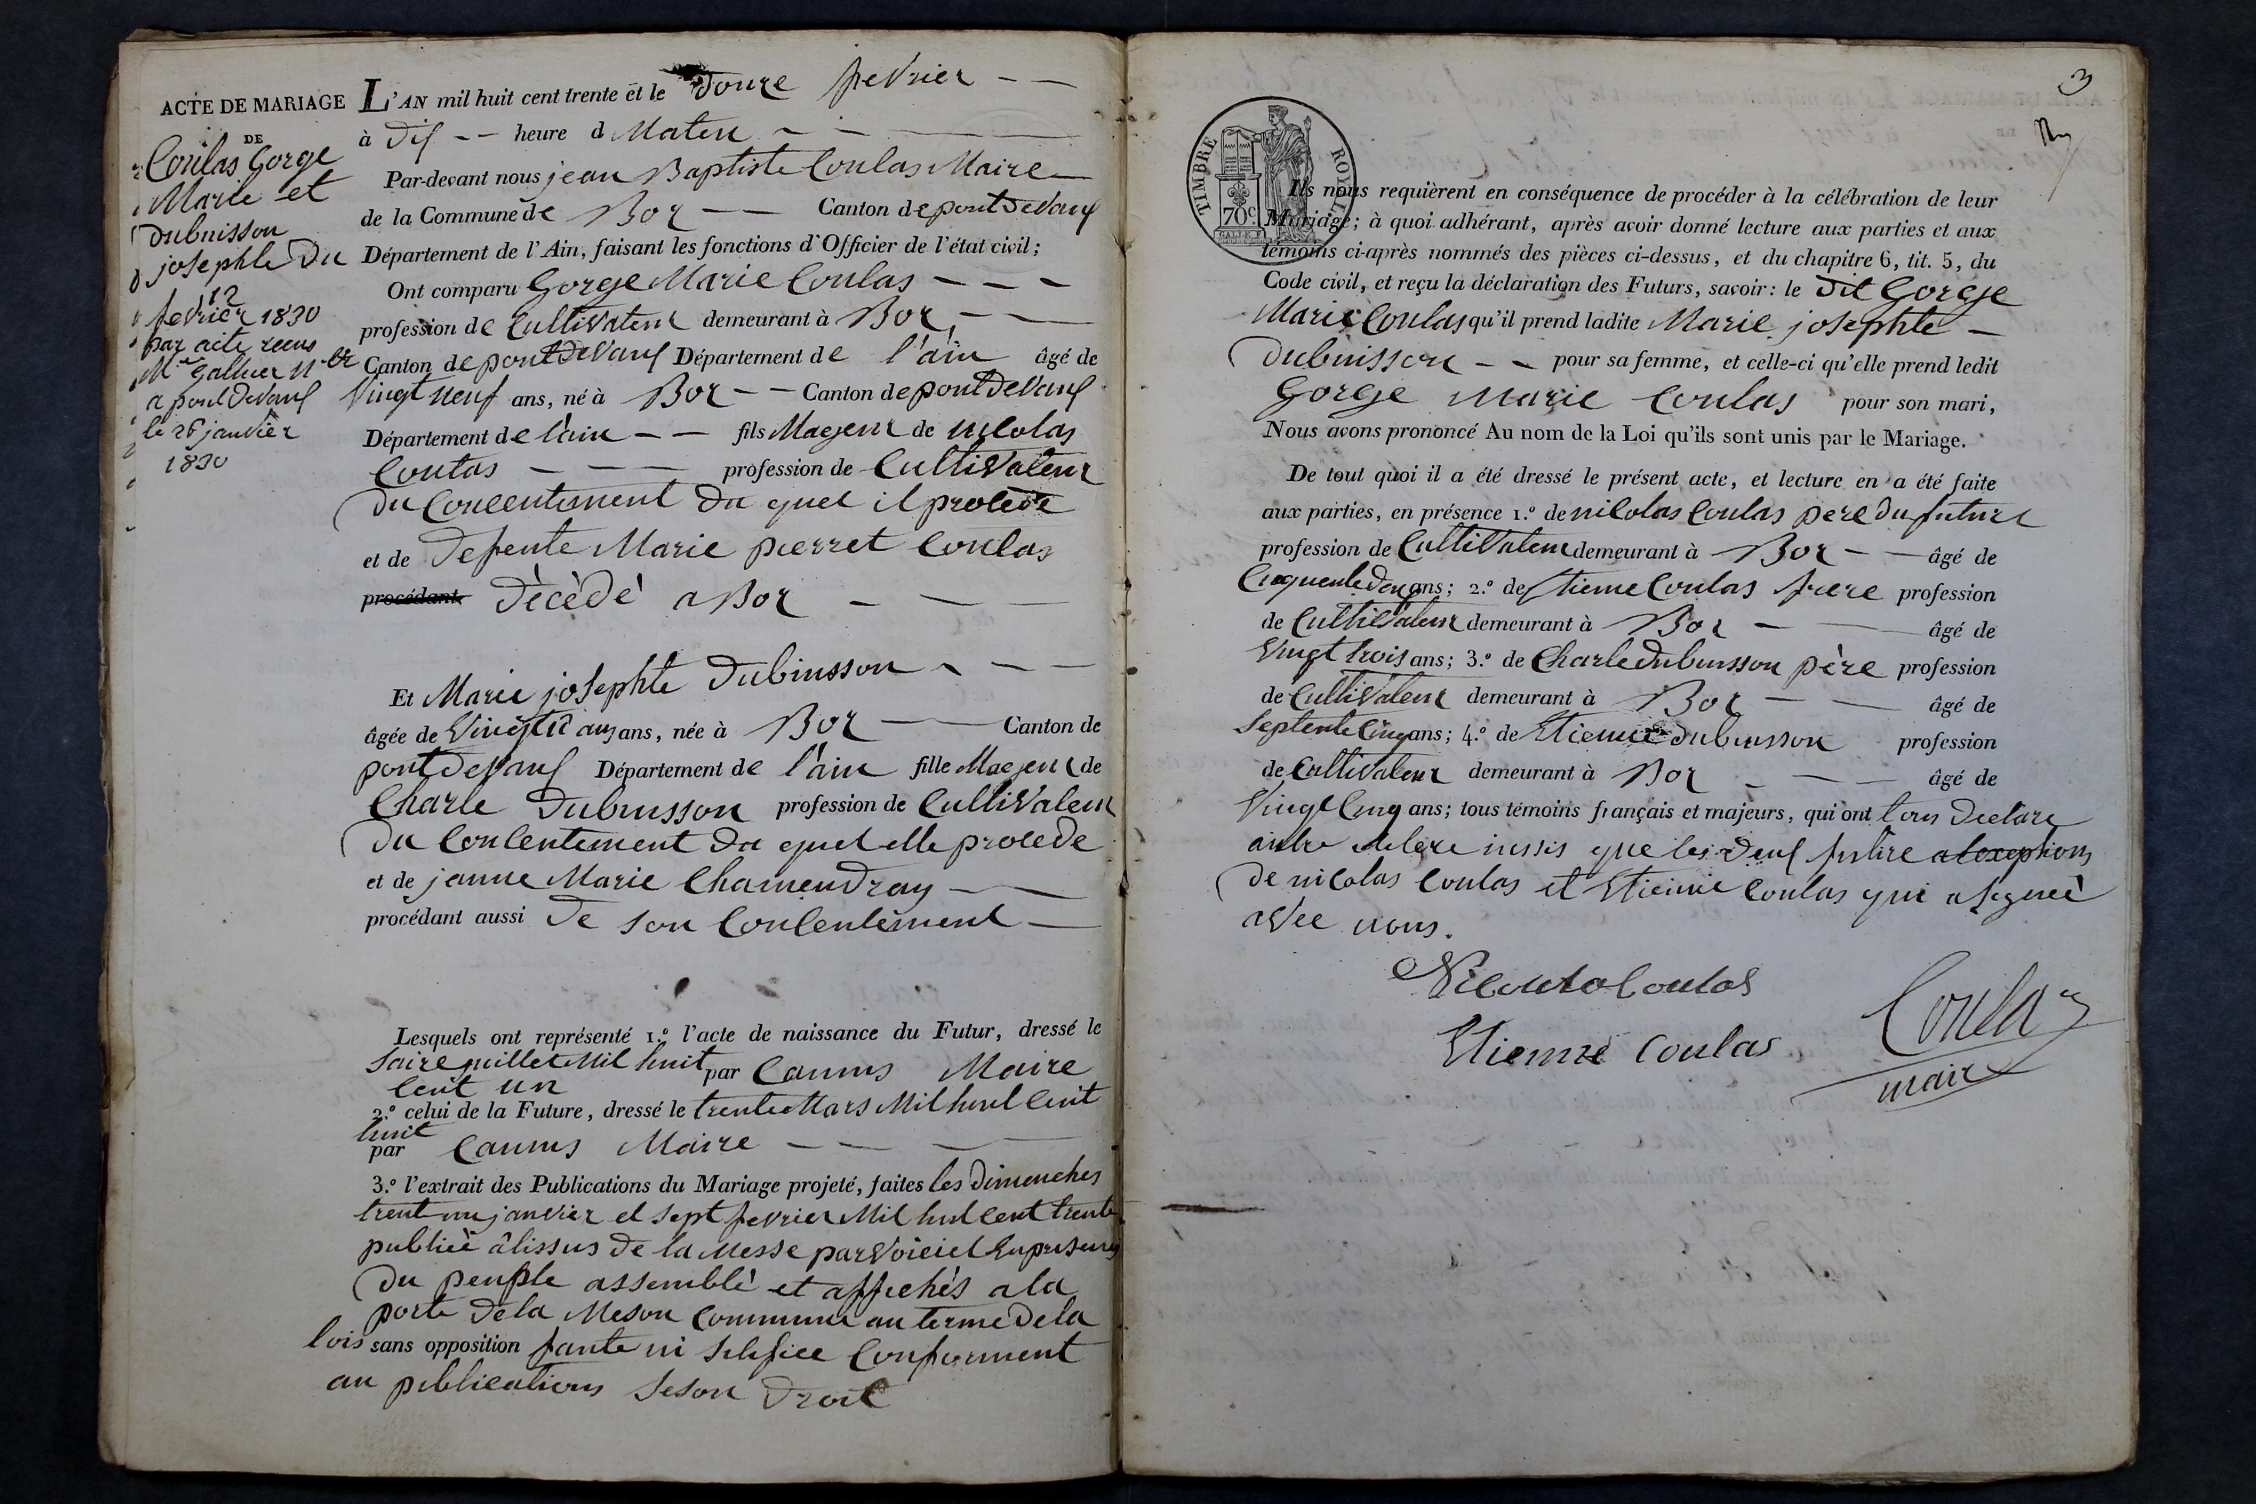 ACTE DE MARIAGE
DE
Coulas Gorge
Marie et
Dubuisson
josephte Du
12
fevrier 1830
par acte recus
Me galhier n.re
a pontDeVaux
le 26 janvier
1830
L'AN mil huit cent trente et le Douze fevrier
à Dix heure d Maten
Par-devant nous jean Baptiste Coulas Maire
de la Commune de Boz Canton de pontDeVaux
Département de l'Ain, faisant les fonctions d'Officier de l'état civil;
Ont comparu Gorge Marie Coulas
profession de CultiVateur demeurant à Boz,
Canton de pontDeVaux Département de l'ain âgé de
Vingt neuf ans, né à Boz Canton de pontDeVaux
Département de l'ain fils Maejeur de nicolas
Coulas profession de CultiVateur
Du Concentement Du quel il procède
et de Defente Marie pierret Coulas
procédant Dècèdè a Boz
Et Marie josephte Dubuisson
âgée de ans, née à Boz Canton de
pontDeVaux Département de l'ain fille Maejeur de
Charle Dubuisson profession de CultiVateur
Du Concentement Du quel elle procede
et de janne Marie Chamendray
procédant aussi De son Concentement
Lesquels ont représenté 1.º l'acte de naissance du Futur, dressé le
Saize juillet Mil huit par Camus Maire
Cent un
2.º celui de la Future, dressé le trente Mars Mil huit Cent
huit
par Camus Maire
3.º l'extrait des Publications du Mariage projeté, faites les Dimenches
trente un janvier et sept fevrier Mil huit cent trente
publiée âlissus De la Messe par Voie Enprisens
Du peuple assemblé et affichés a la
porte De la Meson Commune au terme De la
lois sans opposition fante ni Conforment
au publications Seson Droit
3
TIMBRE ROYAL
70c
Ils nous requièrent en conséquence de procéder à la célébration de leur
Mariage; à quoi adhérant, après avoir donné lecture aux parties et aux
témoins ci-après nommés des pièces ci-dessus, et du chapitre 6, tit. 5, du
Code civil, et reçu la déclaration des Futurs, savoir: le Dit Gorge
Marie Coulas qu'il prend ladite Marie josephte
Dubuisson pour sa femme, et celle-ci qu'elle prend ledit
Gorge Marie Coulas pour son mari,
Nous avons prononcé Au nom de la Loi qu'ils sont unis par le Mariage.
De tout quoi il a été dressé le présent acte, et lecture en a été faite
aux parties, en présence 1.º de nicolas Coulas pere Du future
profession de CultiVateur demeurant à Boz âgé de
ans; 2.º de Etienne Coulas frere profession
de CultiVateur demeurant à Boz âgé de
Vingt trois ans; 3.º de Charle Dubuisson père profession
de CultiVateur demeurant à Boz âgé de
Septente Cinq ans; 4.º de Etienne Dubuisson profession
de CultiVateur demeurant à Boz âgé de
Vingt Cinq ans; tous témoins français et majeurs, qui ont tous Declare
que les Deux a lexeptions
De nicolas Coulas et Etienne Coulas qui a signeè
aVec nous.
Nicoulas Coulas
Etienne Coulas
Coulas
maire